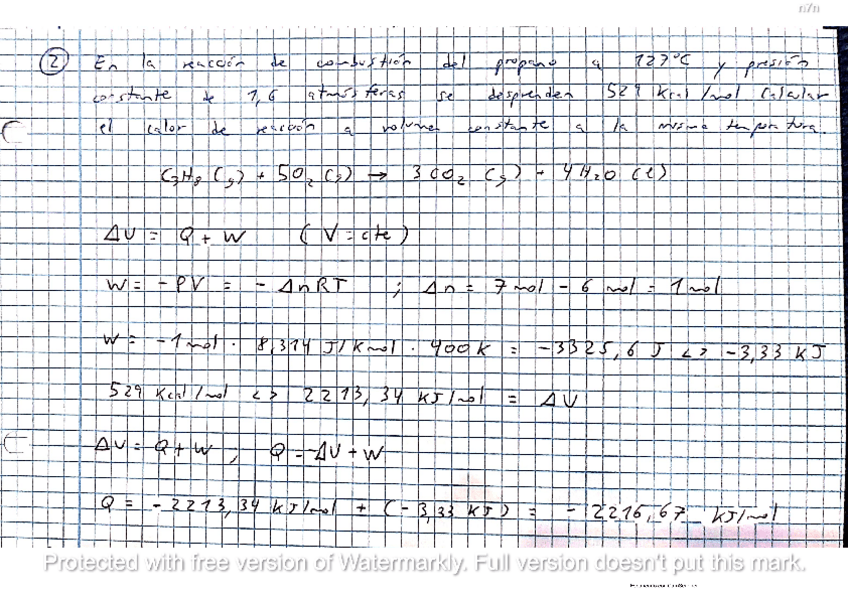 n7n
2 En la reacción de combustión del propano a 127°C y presión
constante de 1,6 atmósferas se desprenden 529 Kcal/mol Calcular
el calor de reacción a volumen constante a la misma temperatura.
C3H8 (g) + 5O2 (g) → 3CO2 (g) + 4H2O (l)
ΔU = Q + W ( V = cte )
W = -PV = - ΔnRT ; Δn = 7 mol - 6 mol = 1 mol
W = -1 mol · 8,314 J/Kmol · 400 K = -3325,6 J <> -3,33 KJ
529 Kcal/mol <> 2213,34 KJ/mol = ΔU
ΔU = Q + W ; Q = -ΔU + W
Q = -2213,34 KJ/mol + (-3,33 KJ) = -2216,67 KJ/mol
Protected with free version of Watermarkly. Full version doesn't put this mark.